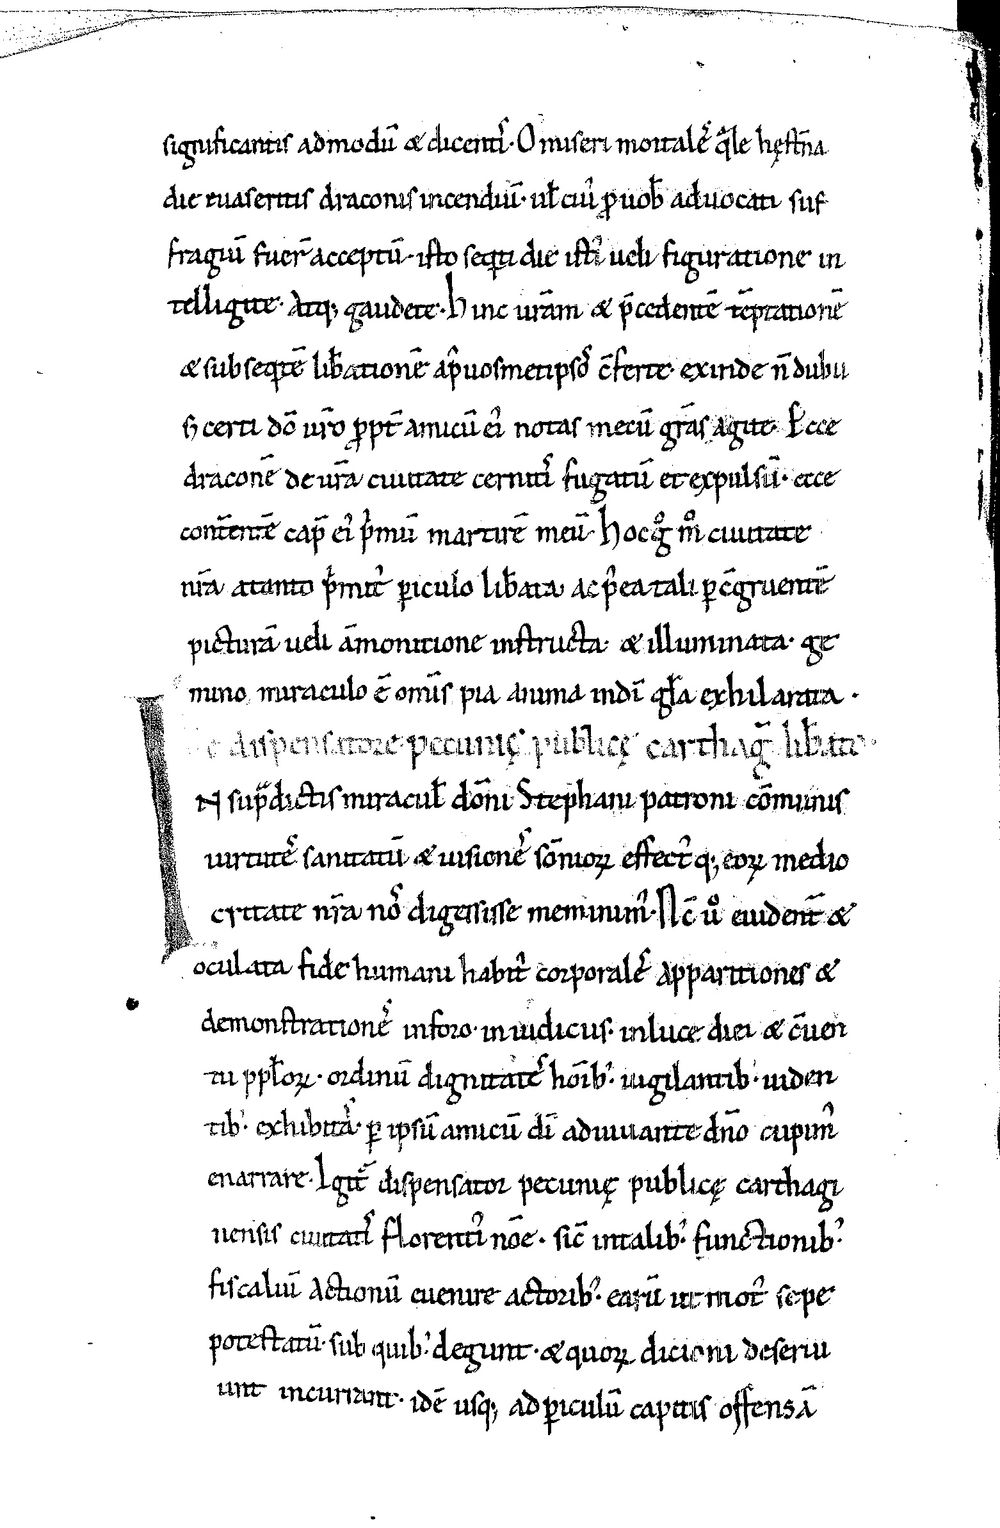 significantis admodū & dicentꝭ. O miseri mortalē q̄le hęst̄na
die euaseritis draconis incendiū. ul̄ cui᷒ ꝓ uob̄ aduocati suf
fragiū fuer̄ acceptū. isto seq̄nti die isti᷒ ueli figuratione in
telligite. Atq; gaudete. Hinc ur̄am & p̄cedentē tēptationē
& subseq̄tē lib̄ationē ap᷒ uosmetipsō c̄ferte. exinde n̄ dubii
ꝫ certi dō ur̄o ꝓpt̄ amicū ei᷒ notas mecū gr̄as agite. Ecce
draconē de ur̄a ciuitate cernitꝭ fugatū et expulsū. ecce
contēntē cap̄ ei᷒ p̄mū martirē meū. Hoc g̊ m̊ ciuitate
nr̄a a tanto p̄mit᷒ ꝑiculo lib̄ata ac p̄ea tali ꝑ c̄gruentē
picturā ueli āmonitione instructa. & illuminata. ge
mino miraculo ē om̄is pia anima in dn̄i gl̄a exhilarata.
De dispensatore pecunię publicę carthaḡ lib̄ato.
IN sup̄dictis miracul̄ dōni Stephani patroni cōmunis
uirtutē sanitatū & uisionē sōnioꝝ effect᷒q; eoꝝ medio
critate nr̄a nō digessisse meminim᷒. Nc̄ ů euident̄ &
oculata fide humani habit᷒ corporalē apparitiones &
demonstrationē in foro. in iudiciis. in luce diei & c̄uen
tu pp̄loꝝ. ordinū dignitatē hōib᷒. uigilantib᷒. uiden
tib᷒. exhibita᷒. ꝑ ipsū amicū dī adiuuante dn̄o cupim᷒
enarrare. Igit᷒ dispensator pecunię publicę carthagi
nensis ciuitatꝭ florenti᷒ nōe. sic̄ in talib᷒. functionib᷒.
fiscaliū actionū euenire actorib᷒. earū ut mot᷒ sepe
potestatū. sub quib᷒. degunt. & quoꝝ dicioni deserui
unt incurrant. idē usq; ad ꝑiculū capitis offensā